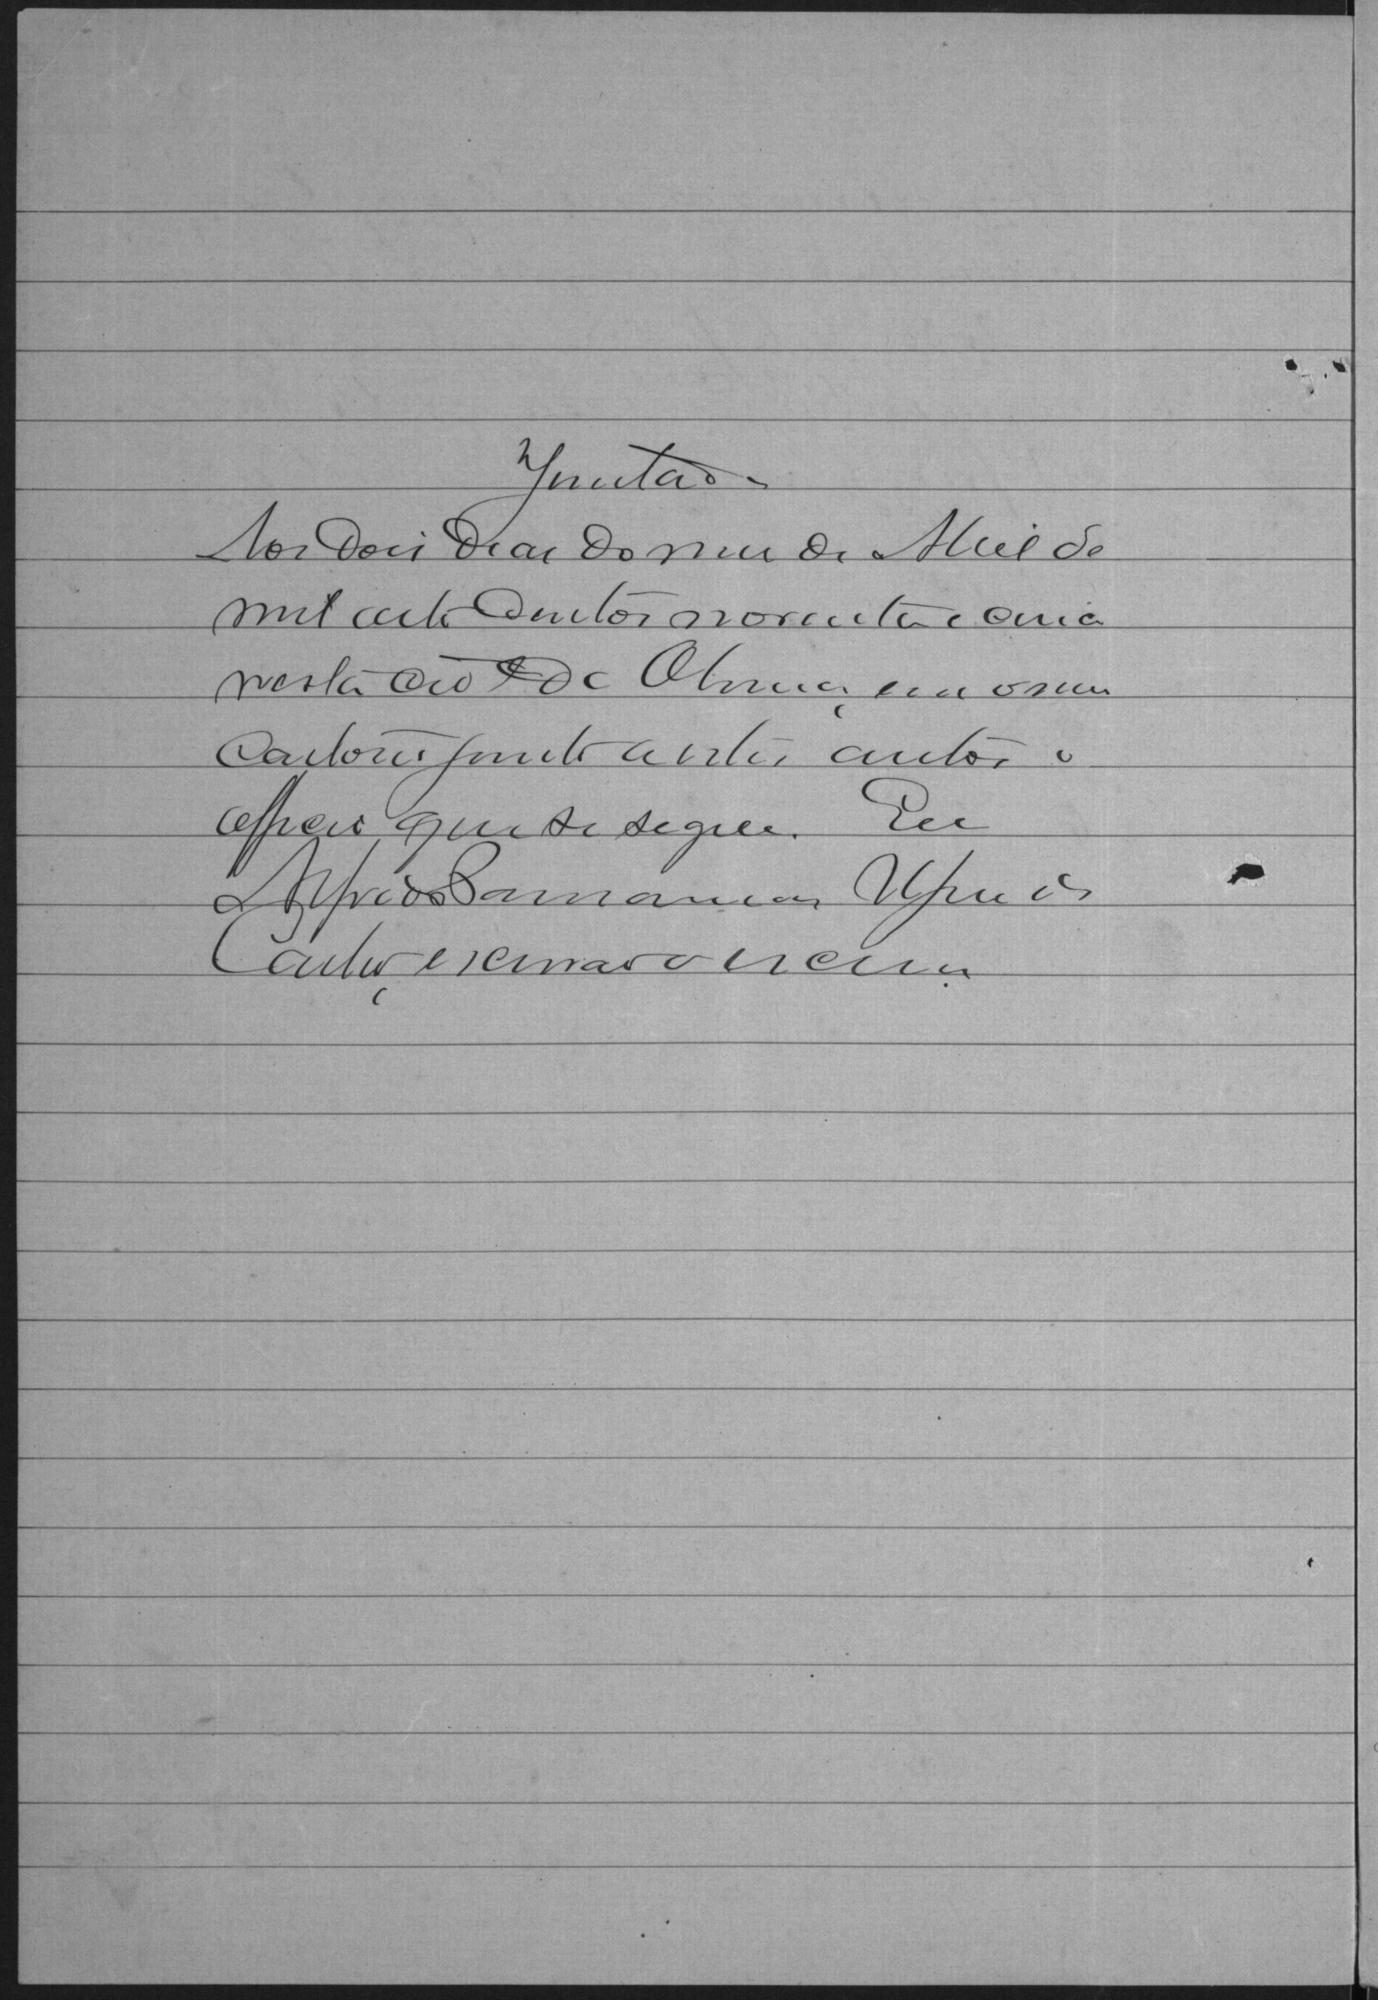 Juntada
Aos dois dias do mez de Abril de
mil oito centos noventa e cinco
nesta cidade de Olinda, em o meu
cartorio junto a estes autos o
officio que se segue. Eu
Alfredo
escrivão o escrevi.